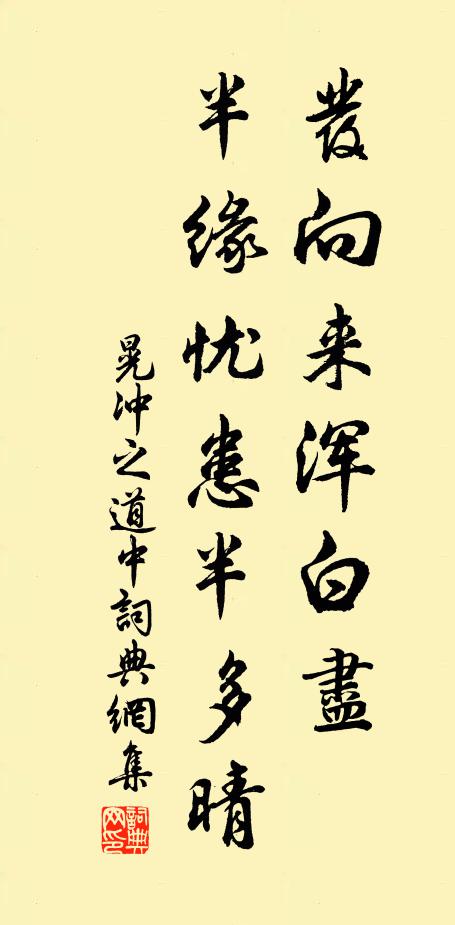 發向来浑白盡
半缘忧患半多晴
晁冲之道中詞典網集
詞典网印